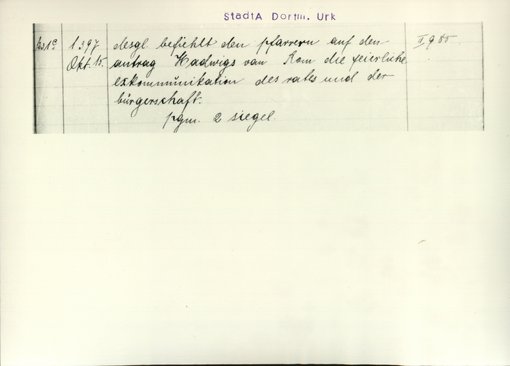 StadtA Dortm. Urk
1397 desgl. befiehlt den pfarrern auf den
Okt. 15. antrag Hadwigs van Rom die feierliche
exkommunikation des rates und der
bürgerschaft.
pgm. 2 siegel.